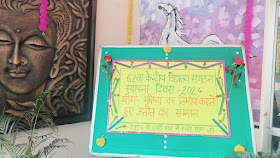 62वां केन्द्रीय विद्यालय संगठन
स्थापना दिवस - 2024
थीम: भविष्य का निर्माण करते
हुए अतीत का सम्मान